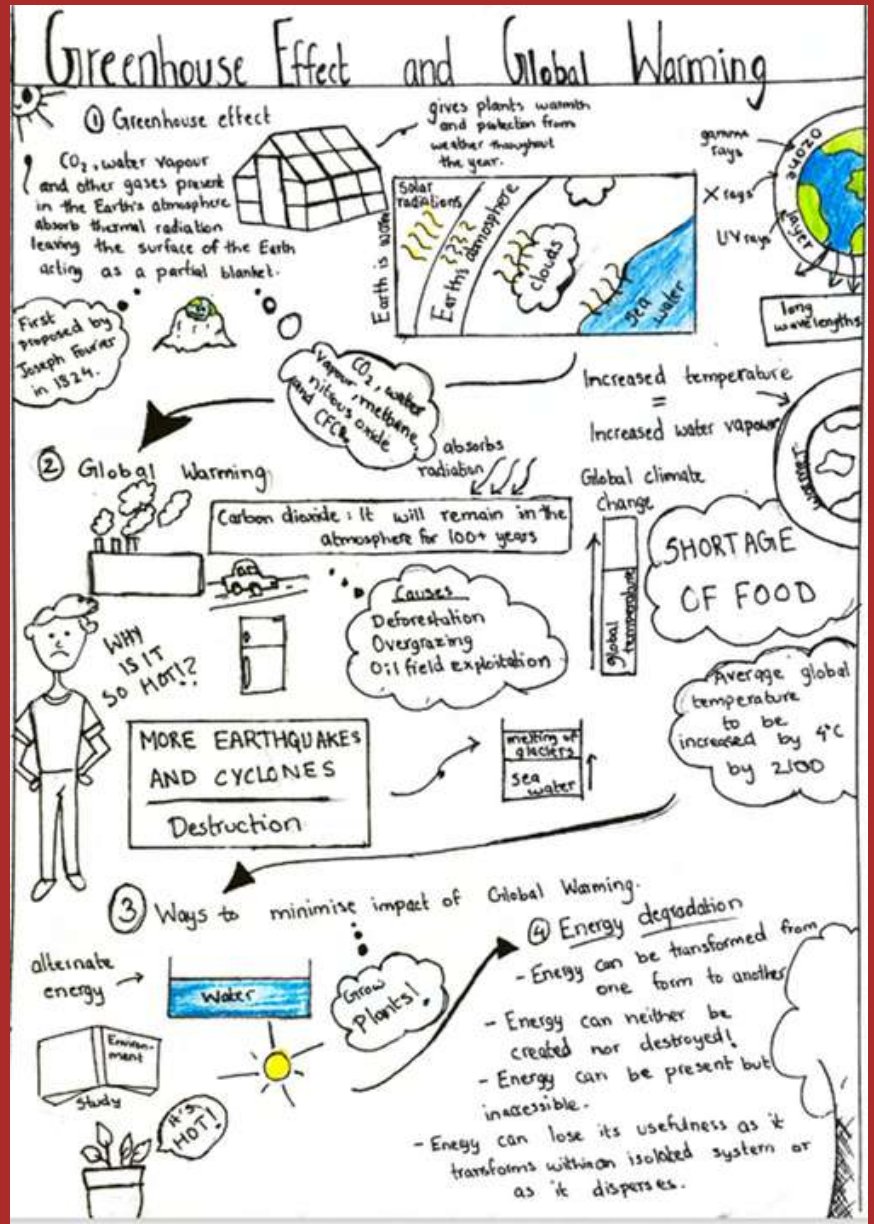 Greenhouse Effect and Global Warming
① Greenhouse effect
CO₂, water vapour
and other gases present
in the Earth's atmosphere
absorb thermal radiation
leaving the surface of the Earth
acting as a partial blanket.
gives plants warmth
and protection from
weather throughout
the year.
First
proposed by
Joseph Fourier
in 1824.
Solar
radiations
Earth's atmosphere
clouds
sea
water
Earth is
gamma
rays
X rays
UV rays
ozone
layer
long
wavelengths
CO₂, water
vapour, methane,
nitrious oxide
and CFCs.
absorbs
radiation
Increased temperature
=
Increased water vapour
② Global Warming
Carbon dioxide : It will remain in the
atmosphere for 100+ years
Global climate
change
global
temperature
SHORTAGE
OF FOOD
Causes
Deforestation
Overgrazing
Oil field exploitation
WHY
IS IT
SO HOT!?
Average global
temperature
to be
increased by 4°C
by 2100
MORE EARTHQUAKES
AND CYCLONES
Destruction
melting of
glaciers
sea
water
③ Ways to minimise impact of Global Warming.
alternate
energy
Water
Grow
Plants!
Environ-
ment
Study
It's
HOT!
④ Energy degradation
- Energy can be transformed from
one form to another
- Energy can neither be
created nor destroyed!
- Energy can be present but
inaccessible.
- Energy can lose its usefulness as it
transforms within an isolated system or
as it disperses.